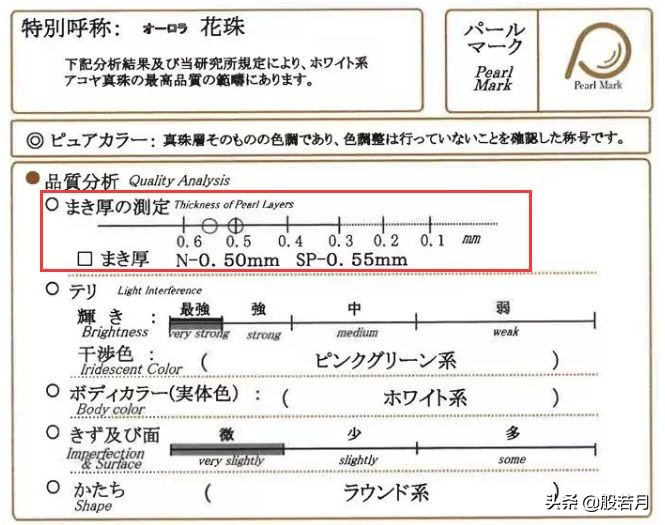 特別呼称： オーロラ 花珠
下記分析結果及び当研究所規定により、ホワイト系
アコヤ真珠の最高品質の範疇にあります。
パール
マーク
Pearl
Mark
Pearl Mark
◎ ピュアカラー： 真珠層そのものの色調であり、色調整は行っていないことを確認した称号です。
品質分析 Quality Analysis
まき厚の測定 Thickness of Pearl Layers
0.6 0.5 0.4 0.3 0.2 0.1 mm
□ まき厚 N-0.50mm SP-0.55mm
テリ Light Interference
最強 強 中 弱
輝き：
Brightness very strong strong medium weak
干渉色： ( ピンクグリーン系 )
Iridescent Color
ボディカラー(実体色)： ( ホワイト系 )
Body color
きず及び面 微 少 多
Imperfection & Surface very slightly slightly some
かたち ( ラウンド系 )
Shape
头条 @般若月